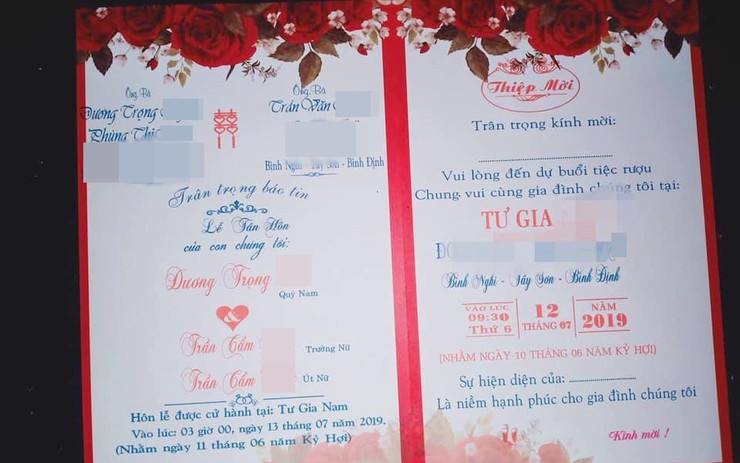 Ông, Bà
Dương Trọng
Phùng Thị
Ông, Bà
Trần Văn
Bình Nghi - Tây Sơn - Bình Định
Trân trọng báo tin
Lễ Tân Hôn
của con chúng tôi:
Dương Trọng
Quý Nam
Trần Cẩm
Trưởng Nữ
Trần Cẩm
Út Nữ
Hôn lễ được cử hành tại: Tư Gia Nam
Vào lúc: 03 giờ 00, ngày 13 tháng 07 năm 2019.
(Nhằm ngày 11 tháng 06 năm Kỷ Hợi)
Thiệp Mời
Trân trọng kính mời:
Vui lòng đến dự buổi tiệc rượu
Chung vui cùng gia đình chúng tôi tại:
TƯ GIA
Bình Nghi - Tây Sơn - Bình Định
VÀO LÚC 12 NĂM
09:30 THÁNG 07 2019
Thứ 6
(NHẰM NGÀY 10 THÁNG 06 NĂM KỶ HỢI)
Sự hiện diện của:
Là niềm hạnh phúc cho gia đình chúng tôi
Kính mời !